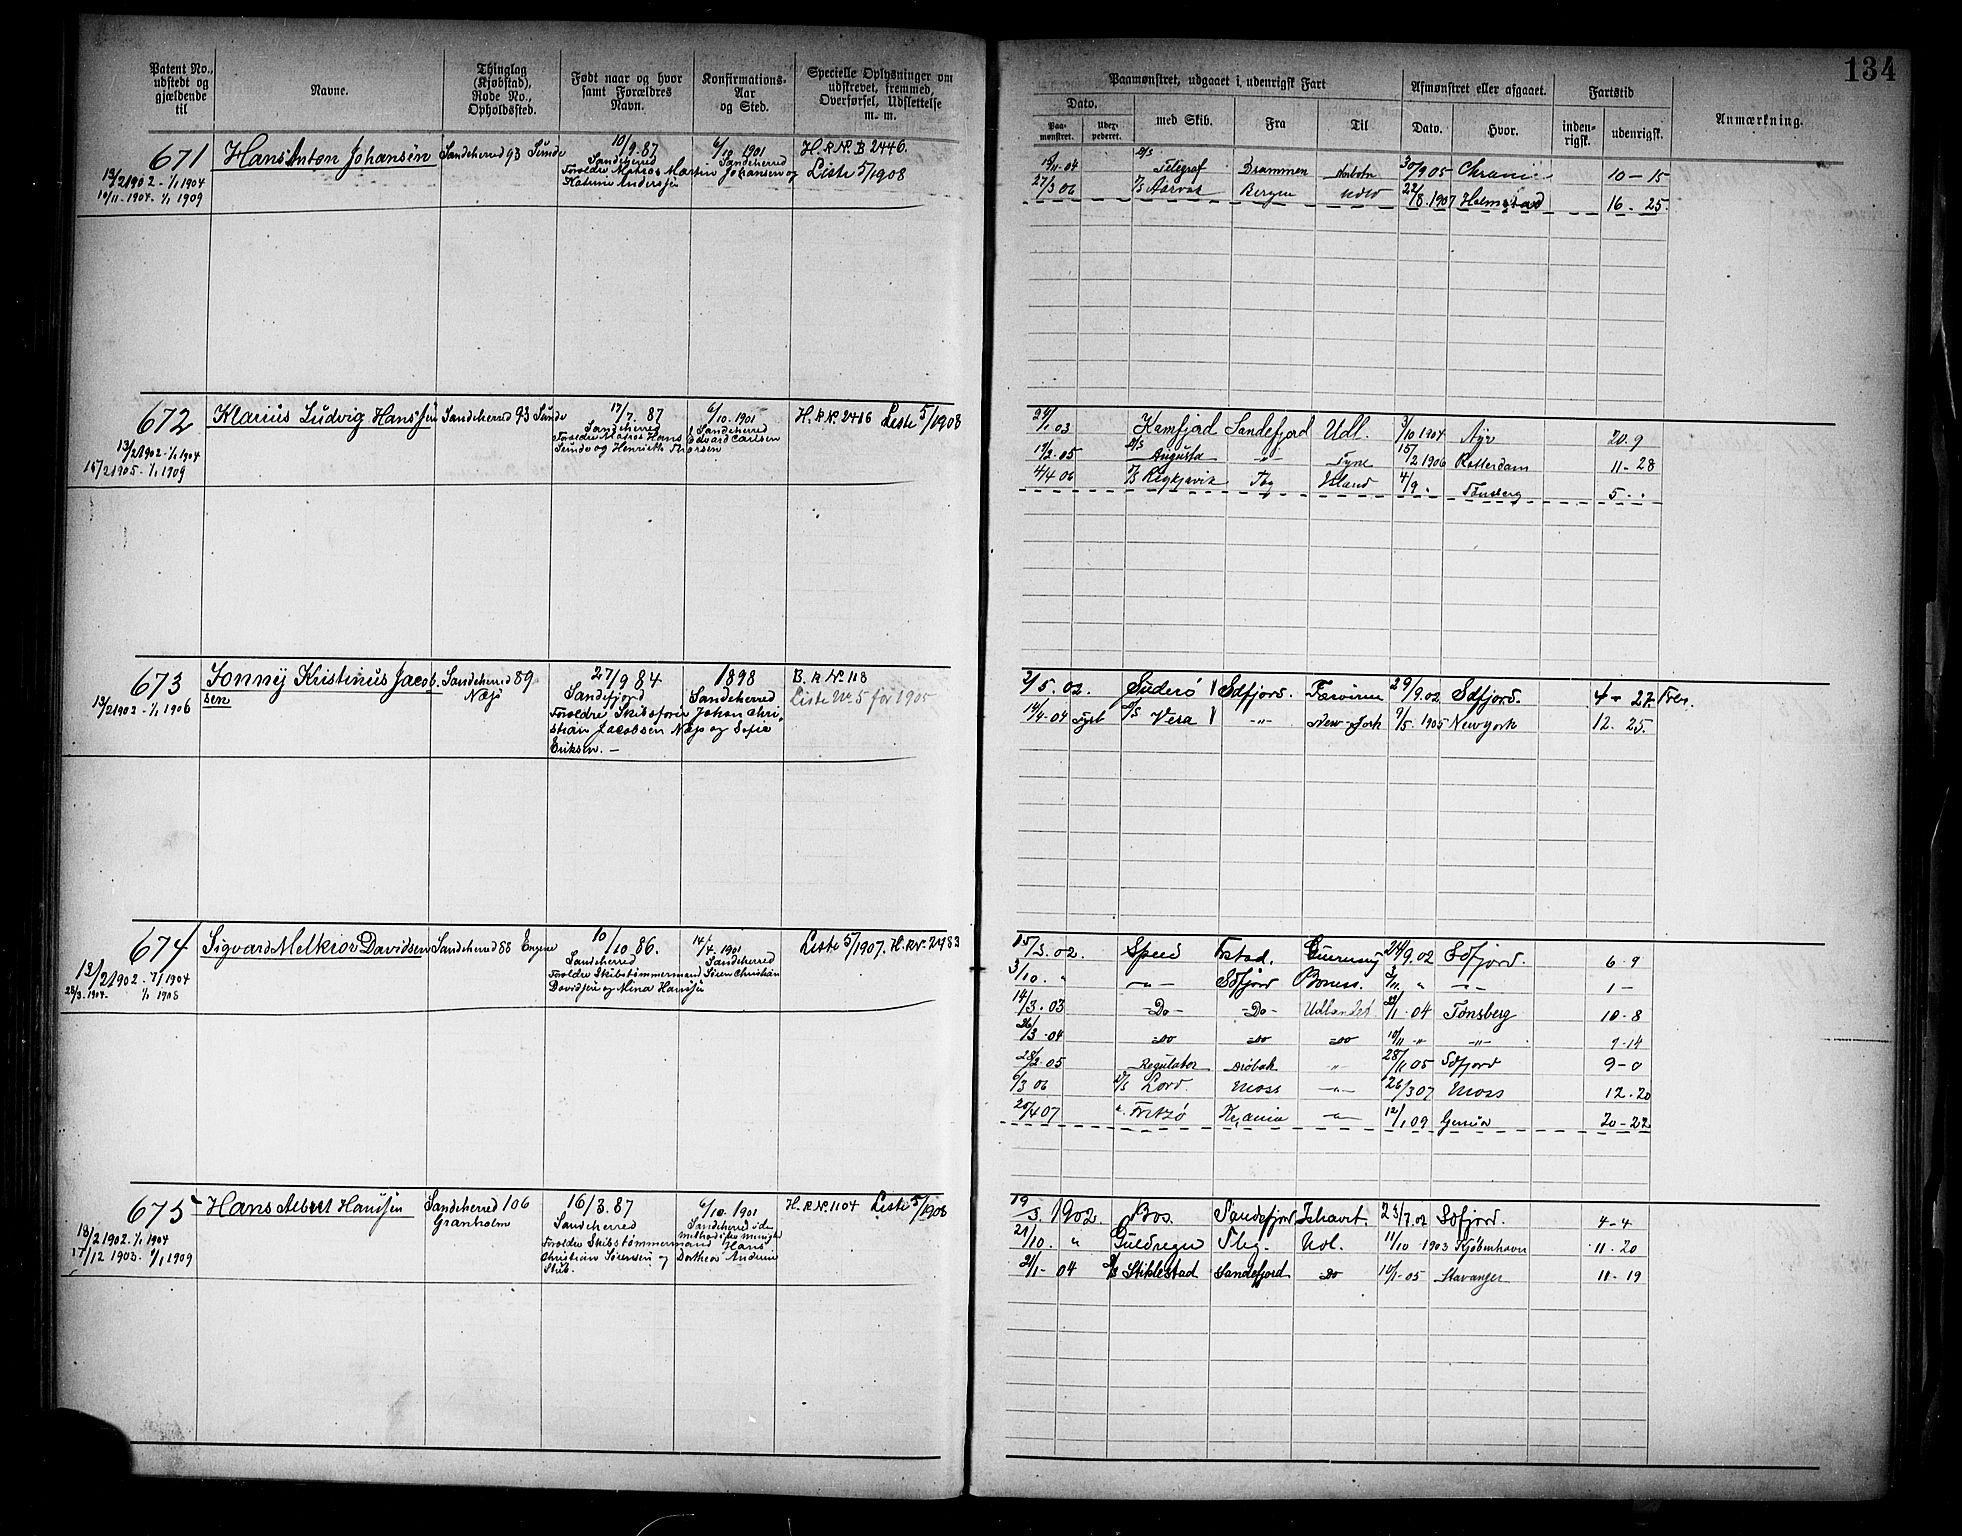 134
Patent No., udstedt og gjældende til
Navne.
Thinglag (Kjøbstad), Rode No., Opholdssted.
Født naar og hvor samt Forældres Navn.
Konfirmations-Aar og Sted.
Specielle Oplysninger om udskrevet, fremmed, Overførsel, Udslettelse m. m.
Paamønstret, udgaaet i udenrigsk Fart
Afmønstret eller afgaaet.
Fartstid
Anmærkning.
Dato.
Paa-mønstret.
Udex-pederet.
med Skib.
Fra
Til
Dato.
Hvor.
inden-rigsk.
udenrigsk.
671
13/2 1902 - 1/1 1904
10/11 - 1904 - 1/1 1909
Hans Anton Johansen
Sandeherred 93 Sunde
10/9 - 87
Sandeherred
Foreldre Matros Martin Johansen og
Katrine Andersen
6/10 1901
Sandeherred
H. R. N. B 2446.
Liste 5/1908
11-04 D/S Telegraf Drammen 30/9 05 10 - 15
27/3 06 Bergen Udld 22/8 1907 Halmstad 16 - 25.
672
13/2 1902 - 1/1 1904
15/2 1905 - 1/1 1909
Klarius Ludvig Hanssen
Sandeherred 93 Sunde
17/7. 87
Sandeherred
Foreldre Matros Hans Edvard Carlsen
Sunde og Henriette Thorsen
6/10. 1901
Sandeherred
H. R. N. 2486 Liste 5/1908
24/1 03 Kamfjord Sandefjord Udl. 3/10 1904 Ayr 20. 9
17/2 - 05 D/S Augusta - " - Tyne 15/2 1906 Rotterdam 11 - 28
4/4 06 D/S Reykjavik Tbg Island 4/9 " Tønsberg 5 - "
673
13/2 1902 - 1/1 1906
Jonny Kristinus Jacob
sen
Sandeherred 89
Næs
27/9 84
Sandefjord
Foreldre Skibsfører Johan Chri
stian Jacobsen Næs og Sofie
Eriksen. -
1898
Sandeherred
B. R N. 118
Liste No 5 for 1905
2/5. 02. Suderø Sdfjord. Færøerne 29/9. 02 Sdfjord. 4 - 27
14/4 - 04 D/S Vera - " - New-York 9/5 1905 Newyork 12. 25.
674
13/2 1902 - 1/1 1904
28/3. 1904. 1/1 1908
Sigvard Melkior Davidsen
Sandeherred 88
10/10 86.
Sandeherred
Foreldre Skibstømmermand Søren Christian
Davidsen og Mina Hanssen
14/4. 1901
Sandeherred
Liste 5/1907. H. R N. 2483
15/3. 02. Speed Guernsey 24/9. 02 Sdfjord. 6 - 9
3/10. " - " - Sdfjord Boness. " - " - 1 -
14/3 - 03 - Do - - Do - Udlandet 1 - 04 Tønsberg 10 - 8
26/3 - 04 - Do - Do - Do 10/11 " - " - 9 - 14
28/2 - 05 Regulator Drøbak - " - 28/11 05 Sdfjord 9 - 0
6/3 06 D/S Lord Moss - " - 26/3 07 Moss 12. 20
20/4 07 " Fritzø Kr.ania - " - 12/1 09 20 - 22
675
18/2 1902. 1/1 1904
17/12 1903. 1/1 1909
Hans Albert Hanssen
Sandeherred 106
Granholm
16/3. 87
Sandeherred
Foreldre Skibstømmermand Hans
Christian Sørensen og Dorthea Andrine
Stub.
6/10. 1901
Sandeherred
H. R N. 1104 Liste 5/1908
19/3. 1902. Bos. Sandefjord Ishavet. 23/7. 02 Sdfjord. 4 - 4
21/10. " Guldregn Sbg. Udl. 11/10 1903 Kjøbenhavn 11. 20
21/1 - 04 D/S Stiklestad Sandefjord Do 10/1 - 05 Stavanger 11 - 19